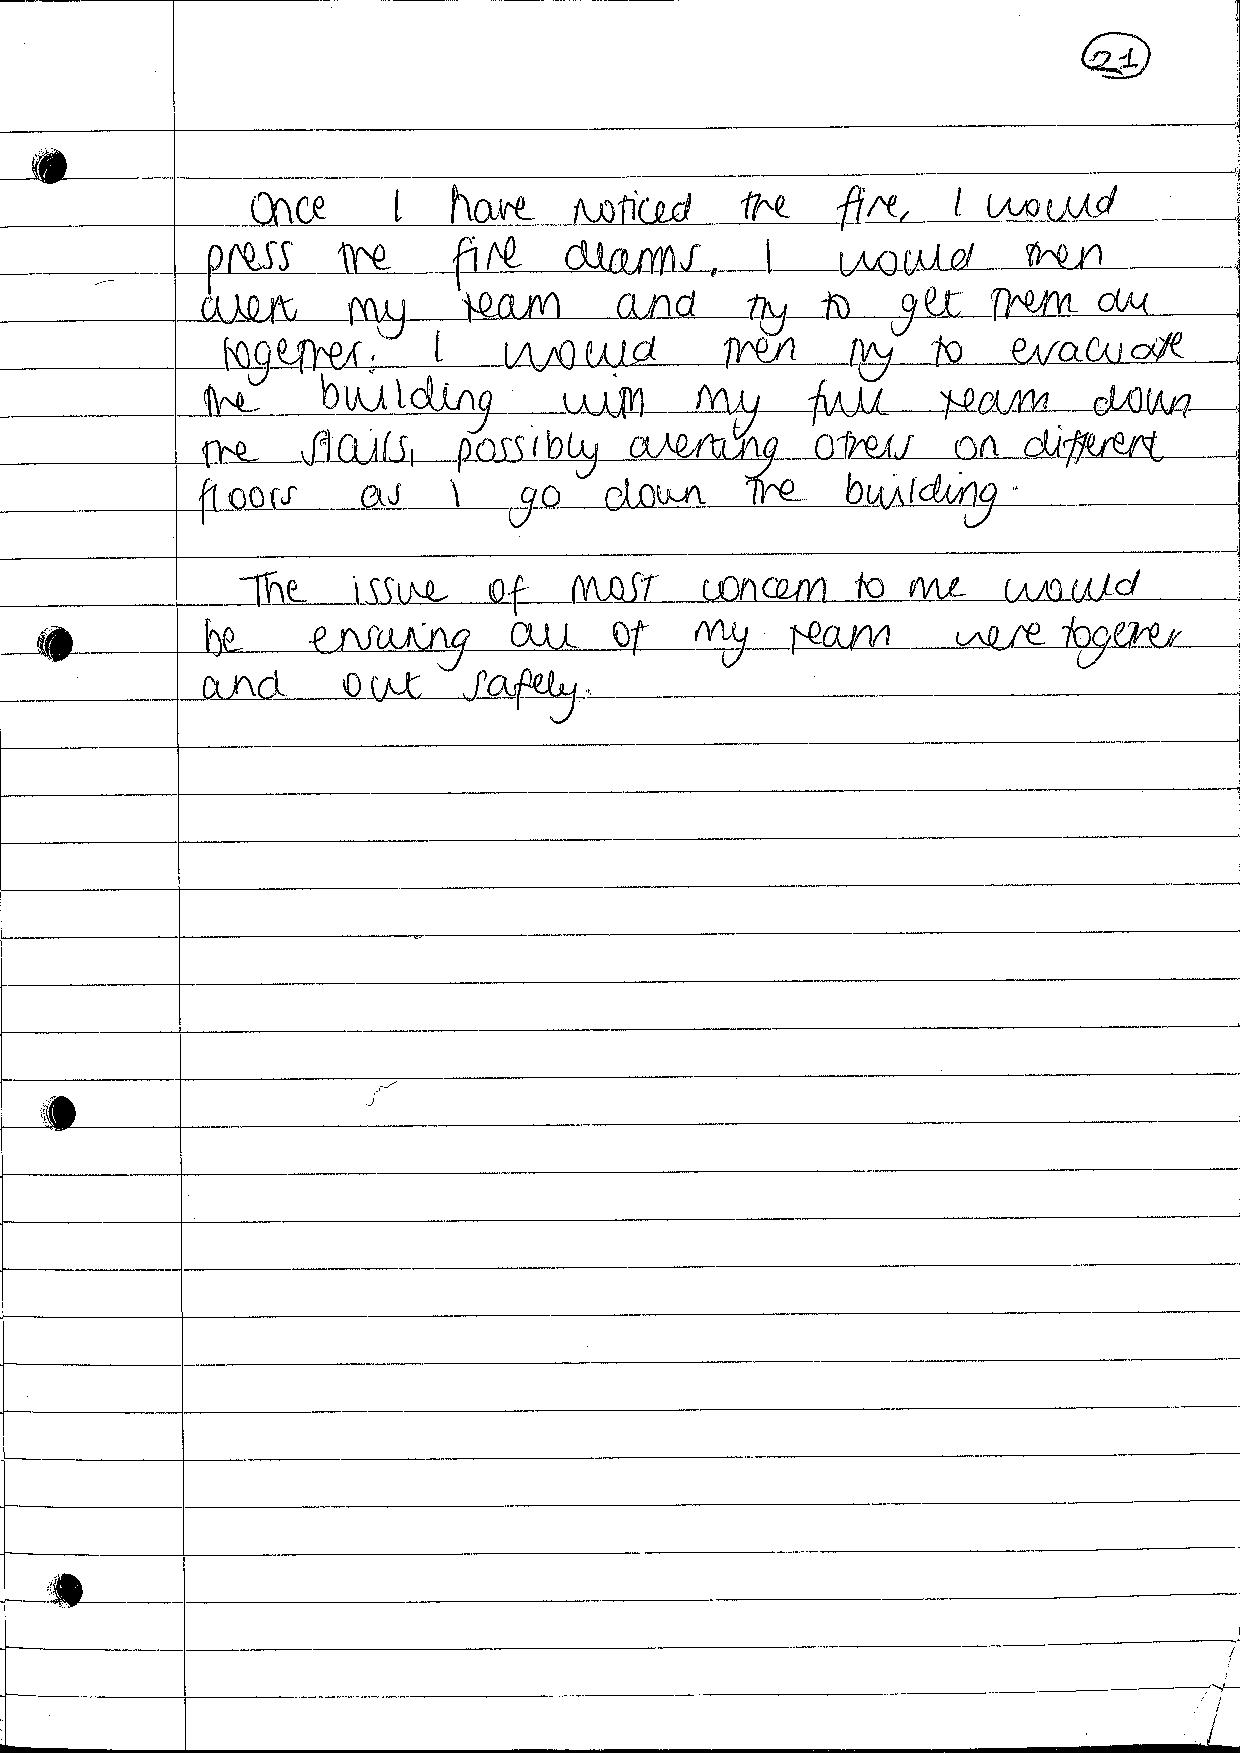 21
Once I have noticed the fire, I would
press the fire alarms. I would then
alert my team and try to get them all
together. I would then try to evacuate
the building with my full team down
the stairs, possibly alerting others on different
floors as I go down the building.
The issue of most concern to me would
be ensuring all of my team were together
and out safely.